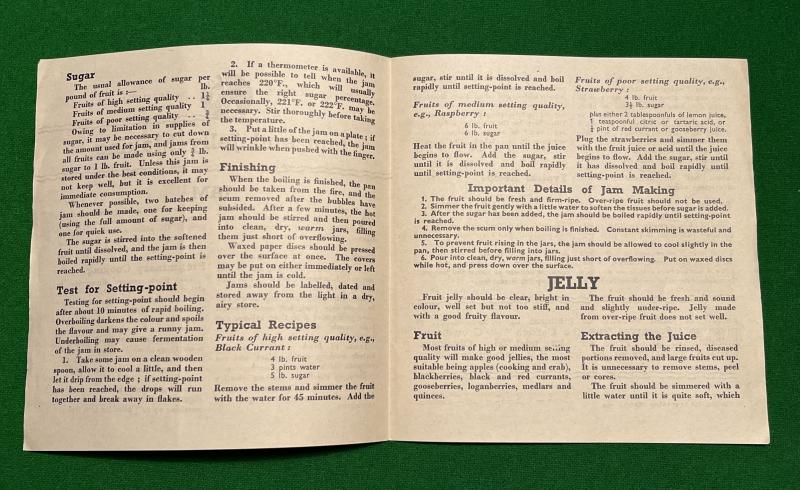 Sugar
The usual allowance of sugar per
pound of fruit is :— lb.
Fruits of high setting quality . . 1¼
Fruits of medium setting quality 1
Fruits of poor setting quality . . ¾
Owing to limitation in supplies of
sugar, it may be necessary to cut down
the amount used for jam, and jams from
all fruits can be made using only ¾ lb.
sugar to 1 lb. fruit. Unless this jam is
stored under the best conditions, it may
not keep well, but it is excellent for
immediate consumption.
Whenever possible, two batches of
jam should be made, one for keeping
(using the full amount of sugar), and
one for quick use.
The sugar is stirred into the softened
fruit until dissolved, and the jam is then
boiled rapidly until the setting-point is
reached.
Test for Setting-point
Testing for setting-point should begin
after about 10 minutes of rapid boiling.
Overboiling darkens the colour and spoils
the flavour and may give a runny jam.
Underboiling may cause fermentation
of the jam in store.
1. Take some jam on a clean wooden
spoon, allow it to cool a little, and then
let it drip from the edge ; if setting-point
has been reached, the drops will run
together and break away in flakes.
2. If a thermometer is available, it
will be possible to tell when the jam
reaches 220°F., which will usually
ensure the right sugar percentage.
Occasionally, 221°F. or 222°F. may be
necessary. Stir thoroughly before taking
the temperature.
3. Put a little of the jam on a plate ; if
setting-point has been reached, the jam
will wrinkle when pushed with the finger.
Finishing
When the boiling is finished, the pan
should be taken from the fire, and the
scum removed after the bubbles have
subsided. After a few minutes, the hot
jam should be stirred and then poured
into clean, dry, warm jars, filling
them just short of overflowing.
Waxed paper discs should be pressed
over the surface at once. The covers
may be put on either immediately or left
until the jam is cold.
Jams should be labelled, dated and
stored away from the light in a dry,
airy store.
Typical Recipes
Fruits of high setting quality, e.g.,
Black Currant :
4 lb. fruit
3 pints water
5 lb. sugar
Remove the stems and simmer the fruit
with the water for 45 minutes. Add the
sugar, stir until it is dissolved and boil
rapidly until setting-point is reached.
Fruits of medium setting quality,
e.g., Raspberry :
6 lb. fruit
6 lb. sugar
Heat the fruit in the pan until the juice
begins to flow. Add the sugar, stir
until it is dissolved and boil rapidly
until setting-point is reached.
Fruits of poor setting quality, e.g.,
Strawberry :
4 lb. fruit
3½ lb. sugar
plus either 2 tablespoonfuls of lemon juice,
teaspoonful citric or tartaric acid, or
pint of red currant or gooseberry juice.
Plug the strawberries and simmer them
with the fruit juice or acid until the juice
begins to flow. Add the sugar, stir until
it has dissolved and boil rapidly until
setting-point is reached.
Important Details of Jam Making
1. The fruit should be fresh and firm-ripe. Over-ripe fruit should not be used.
2. Simmer the fruit gently with a little water to soften the tissues before sugar is added.
3. After the sugar has been added, the jam should be boiled rapidly until setting-point
is reached.
4. Remove the scum only when boiling is finished. Constant skimming is wasteful and
unnecessary.
5. To prevent fruit rising in the jars, the jam should be allowed to cool slightly in the
pan, then stirred before filling into jars.
6. Pour into clean, dry, warm jars, filling just short of overflowing. Put on waxed discs
while hot, and press down over the surface.
JELLY
Fruit jelly should be clear, bright in
colour, well set but not too stiff, and
with a good fruity flavour.
Fruit
Most fruits of high or medium setting
quality will make good jellies, the most
suitable being apples (cooking and crab),
blackberries, black and red currants,
gooseberries, loganberries, medlars and
quinces.
The fruit should be fresh and sound
and slightly under-ripe. Jelly made
from over-ripe fruit does not set well.
Extracting the Juice
The fruit should be rinsed, diseased
portions removed, and large fruits cut up.
It is unnecessary to remove stems, peel
or cores.
The fruit should be simmered with a
little water until it is quite soft, which